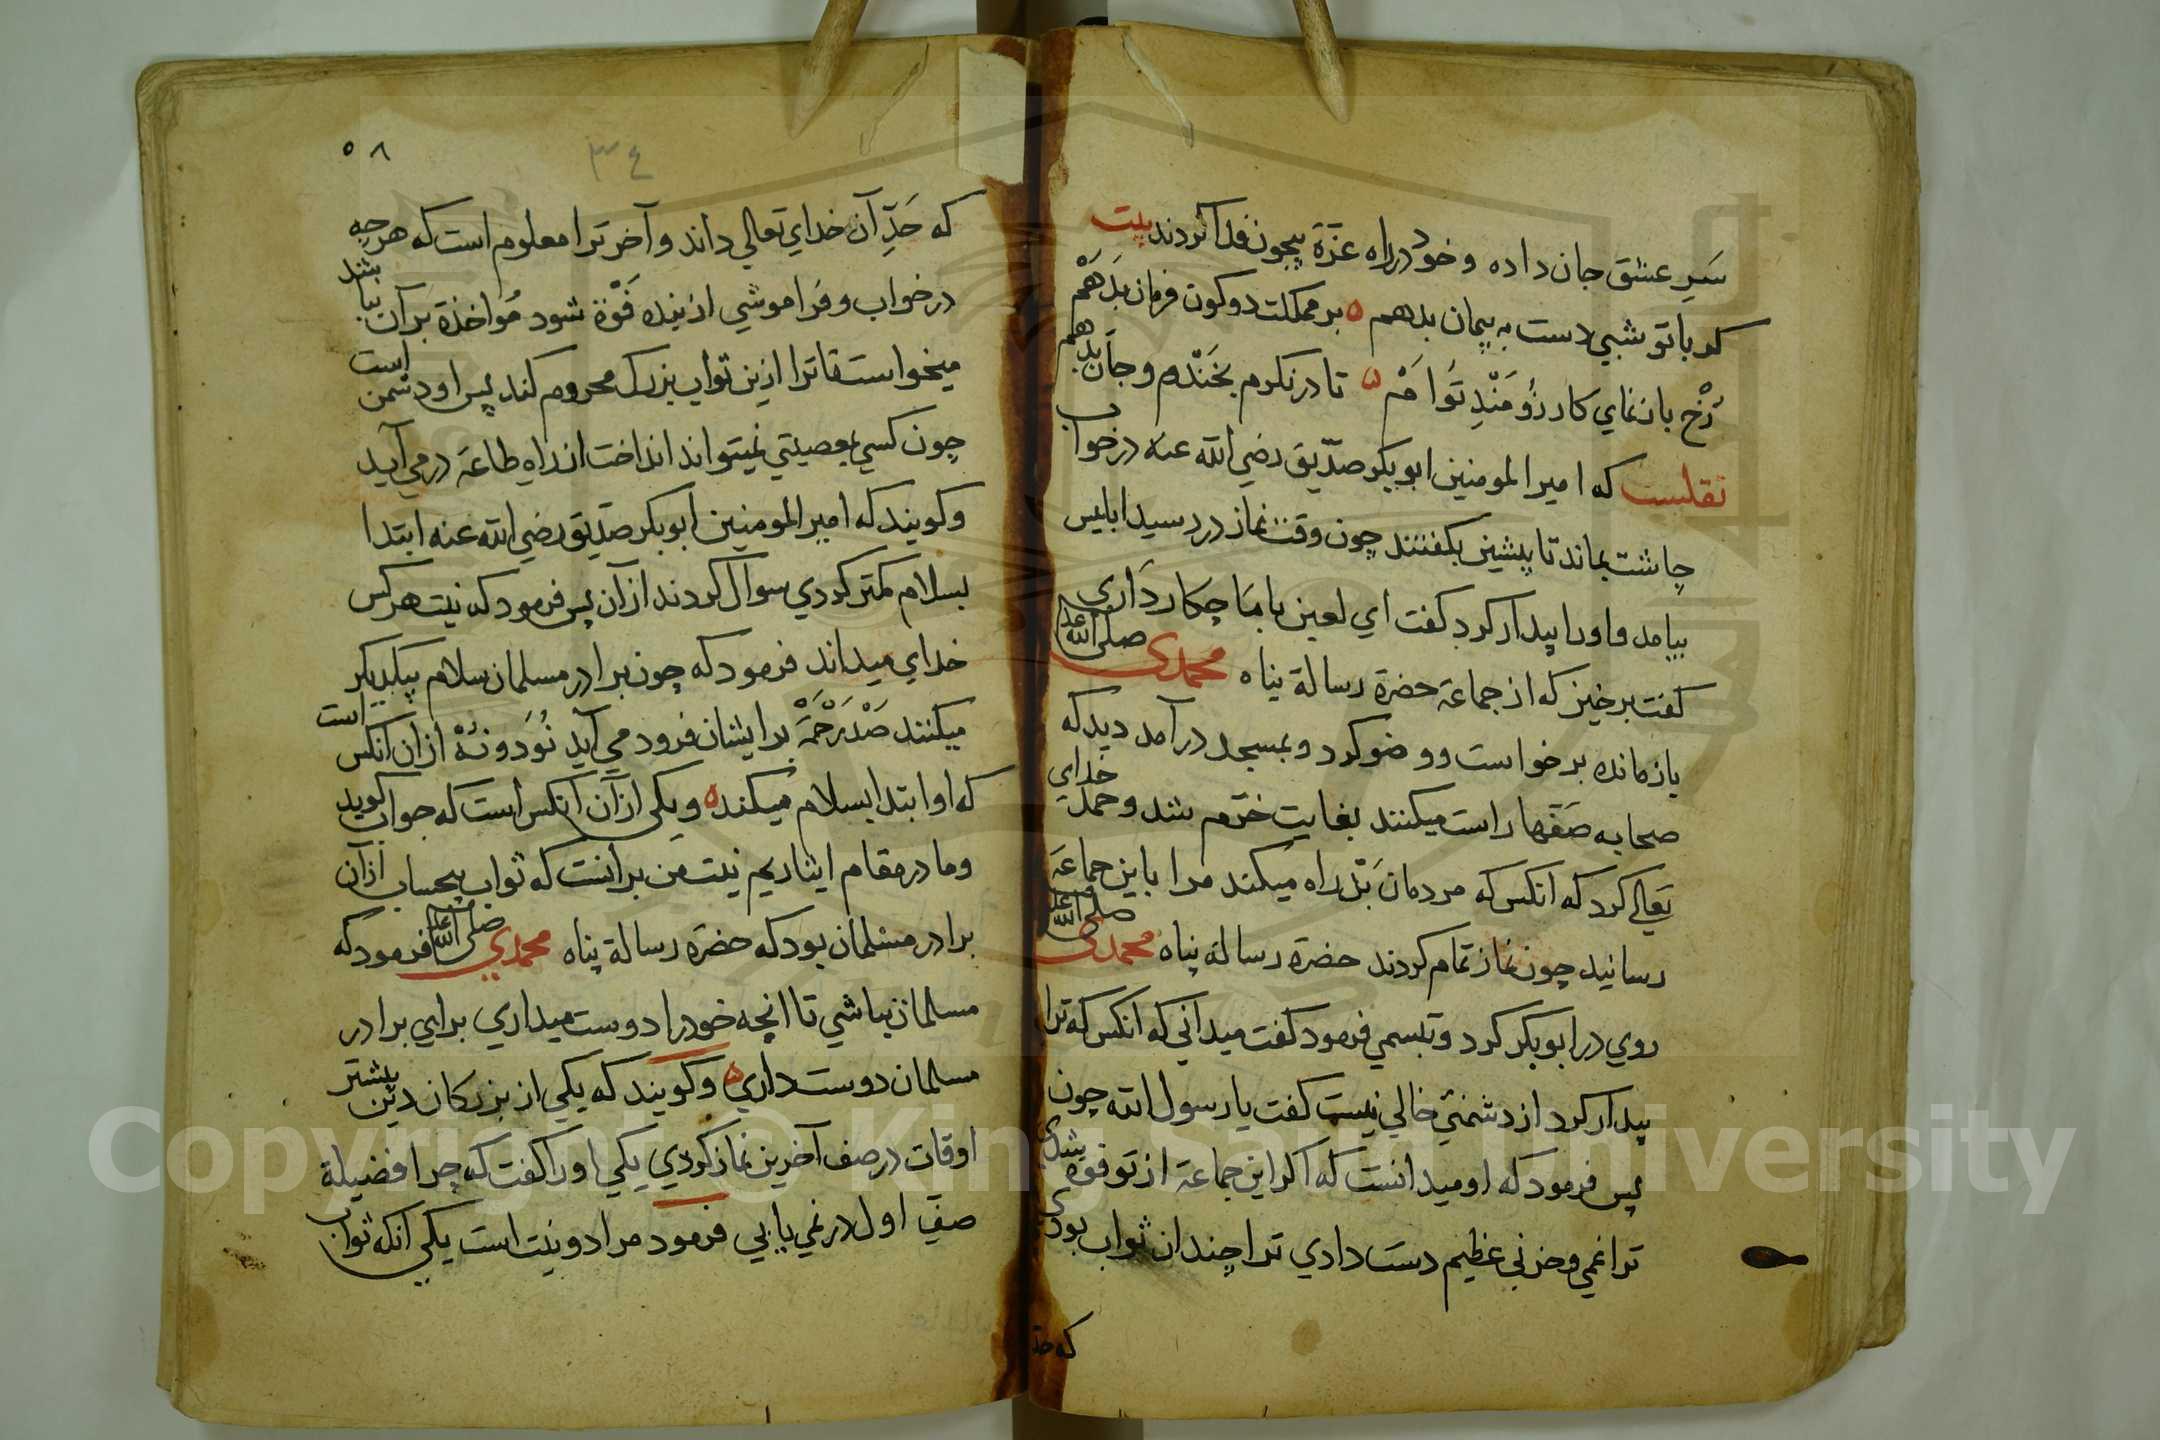 سَرِ عشق جان داده و خود در راه عزّة بیچون فدا کردند بیت
کر با تو شبي دست به پیمان بدهم ٥ بر مملکت دو کون فرمان بدَهَمْ
رُخْ باز نماي کارزُومَنْدِ تُوامْ ٥ تا در نکرم بخَنْدم و جان بدهم
نقلست که امیر المومنین ابو بکر صدّیق رضي الله عنه در خواب
چاشت بماند تا پیشین بکفتند چون وقت نماز در رسید ابلیس
بیامد و اورا بیدار کرد کفت اي لعین با مَا چکار دَاري
کفت برخیز که از جماعة حضرة رسالة پناه محمدي صلى الله عليه
بازمانده برخواست و وضو کرد و بمسجد در آمد دید که
صحابه صَفّها راست میکنند بغایت خرّم شد و حمد خداي
تعالی کرد که انکس که مردمان بَدْراه میکند مرا باین جماعة
رسانید چون نماز تمام کردند حضرة رسالة پناه محمدي صلى الله عليه
روي در ابو بکر کرد و تبسمي فرمود کفت میداني که انکس که ترا
بیدار کرد از دشمنيء خالي نیست کفت یا رسول الله چون
پس فرمود که او میدانست که اکر این جماعة از تو فوة شدي
ترا غمي و حزني عظیم دست دادي ترا چندان ثواب بودي
که حدّ
٥٨
٣٤
که حَدِّ آن خداي تعالي داند و آخر ترا معلوم است که هر چه
در خواب و فراموشي از بنده فَوّة شود مُواخذة بر آن نباشد
میخواست تا ترا ازین ثواب بزرك محروم کند پس او دشمن است
چون کسي بمعصیتي نمیتواند انداخت از راه طاعة در مي آید
و کویند که امیر المومنین ابو بکر صدّیق رضي الله عنه ابتدا
بسلام کمتر کردي سوال کردند از آن پس فرمود که نیت هر کس
خداي میداند فرمود که چون برادر مسلمان سلام بیکدیکر
میکنند صَدْ رَحْمَة بر ایشان فرود مي آید نُوَدونُهْ از آن انکس است
که او ابتدا بسلام میکند ٥ و یکی از آن آنکس است که جواب کوید
و ما در مقام ایثاریم نیت من بر انست که ثواب بیحساب از آن
برادر مسلمان بود که حضرة رسالة پناه محمدي صلى الله عليه فرمود که
مسلمان نباشي تا انچه خود را دوست میداري براي برادر
مسلمان دوست داري ٥ و کویند که یکي از بزرکان دین بیشتر
اوقات در صف آخرین نماز کردي یکي اورا کفت که چرا فضیلة
صف اول در نمي یابي فرمود مرا دو نیت است یکي انکه ثواب